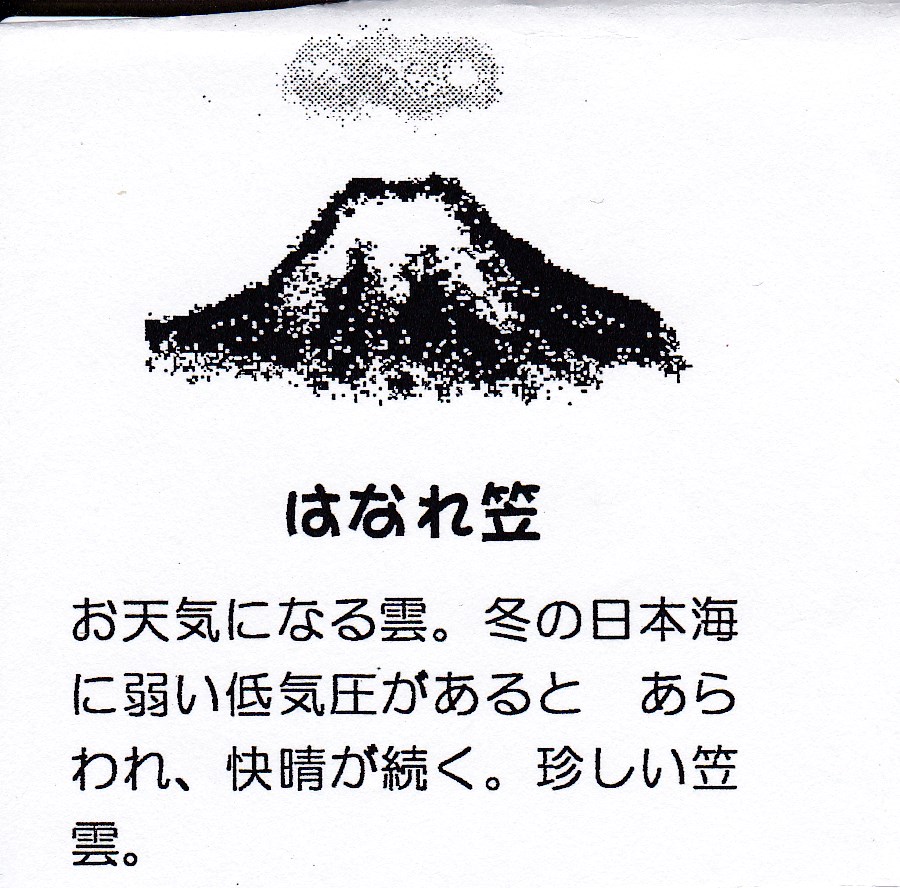 はなれ笠
お天気になる雲。冬の日本海
に弱い低気圧があると　あら
われ、快晴が続く。珍しい笠
雲。